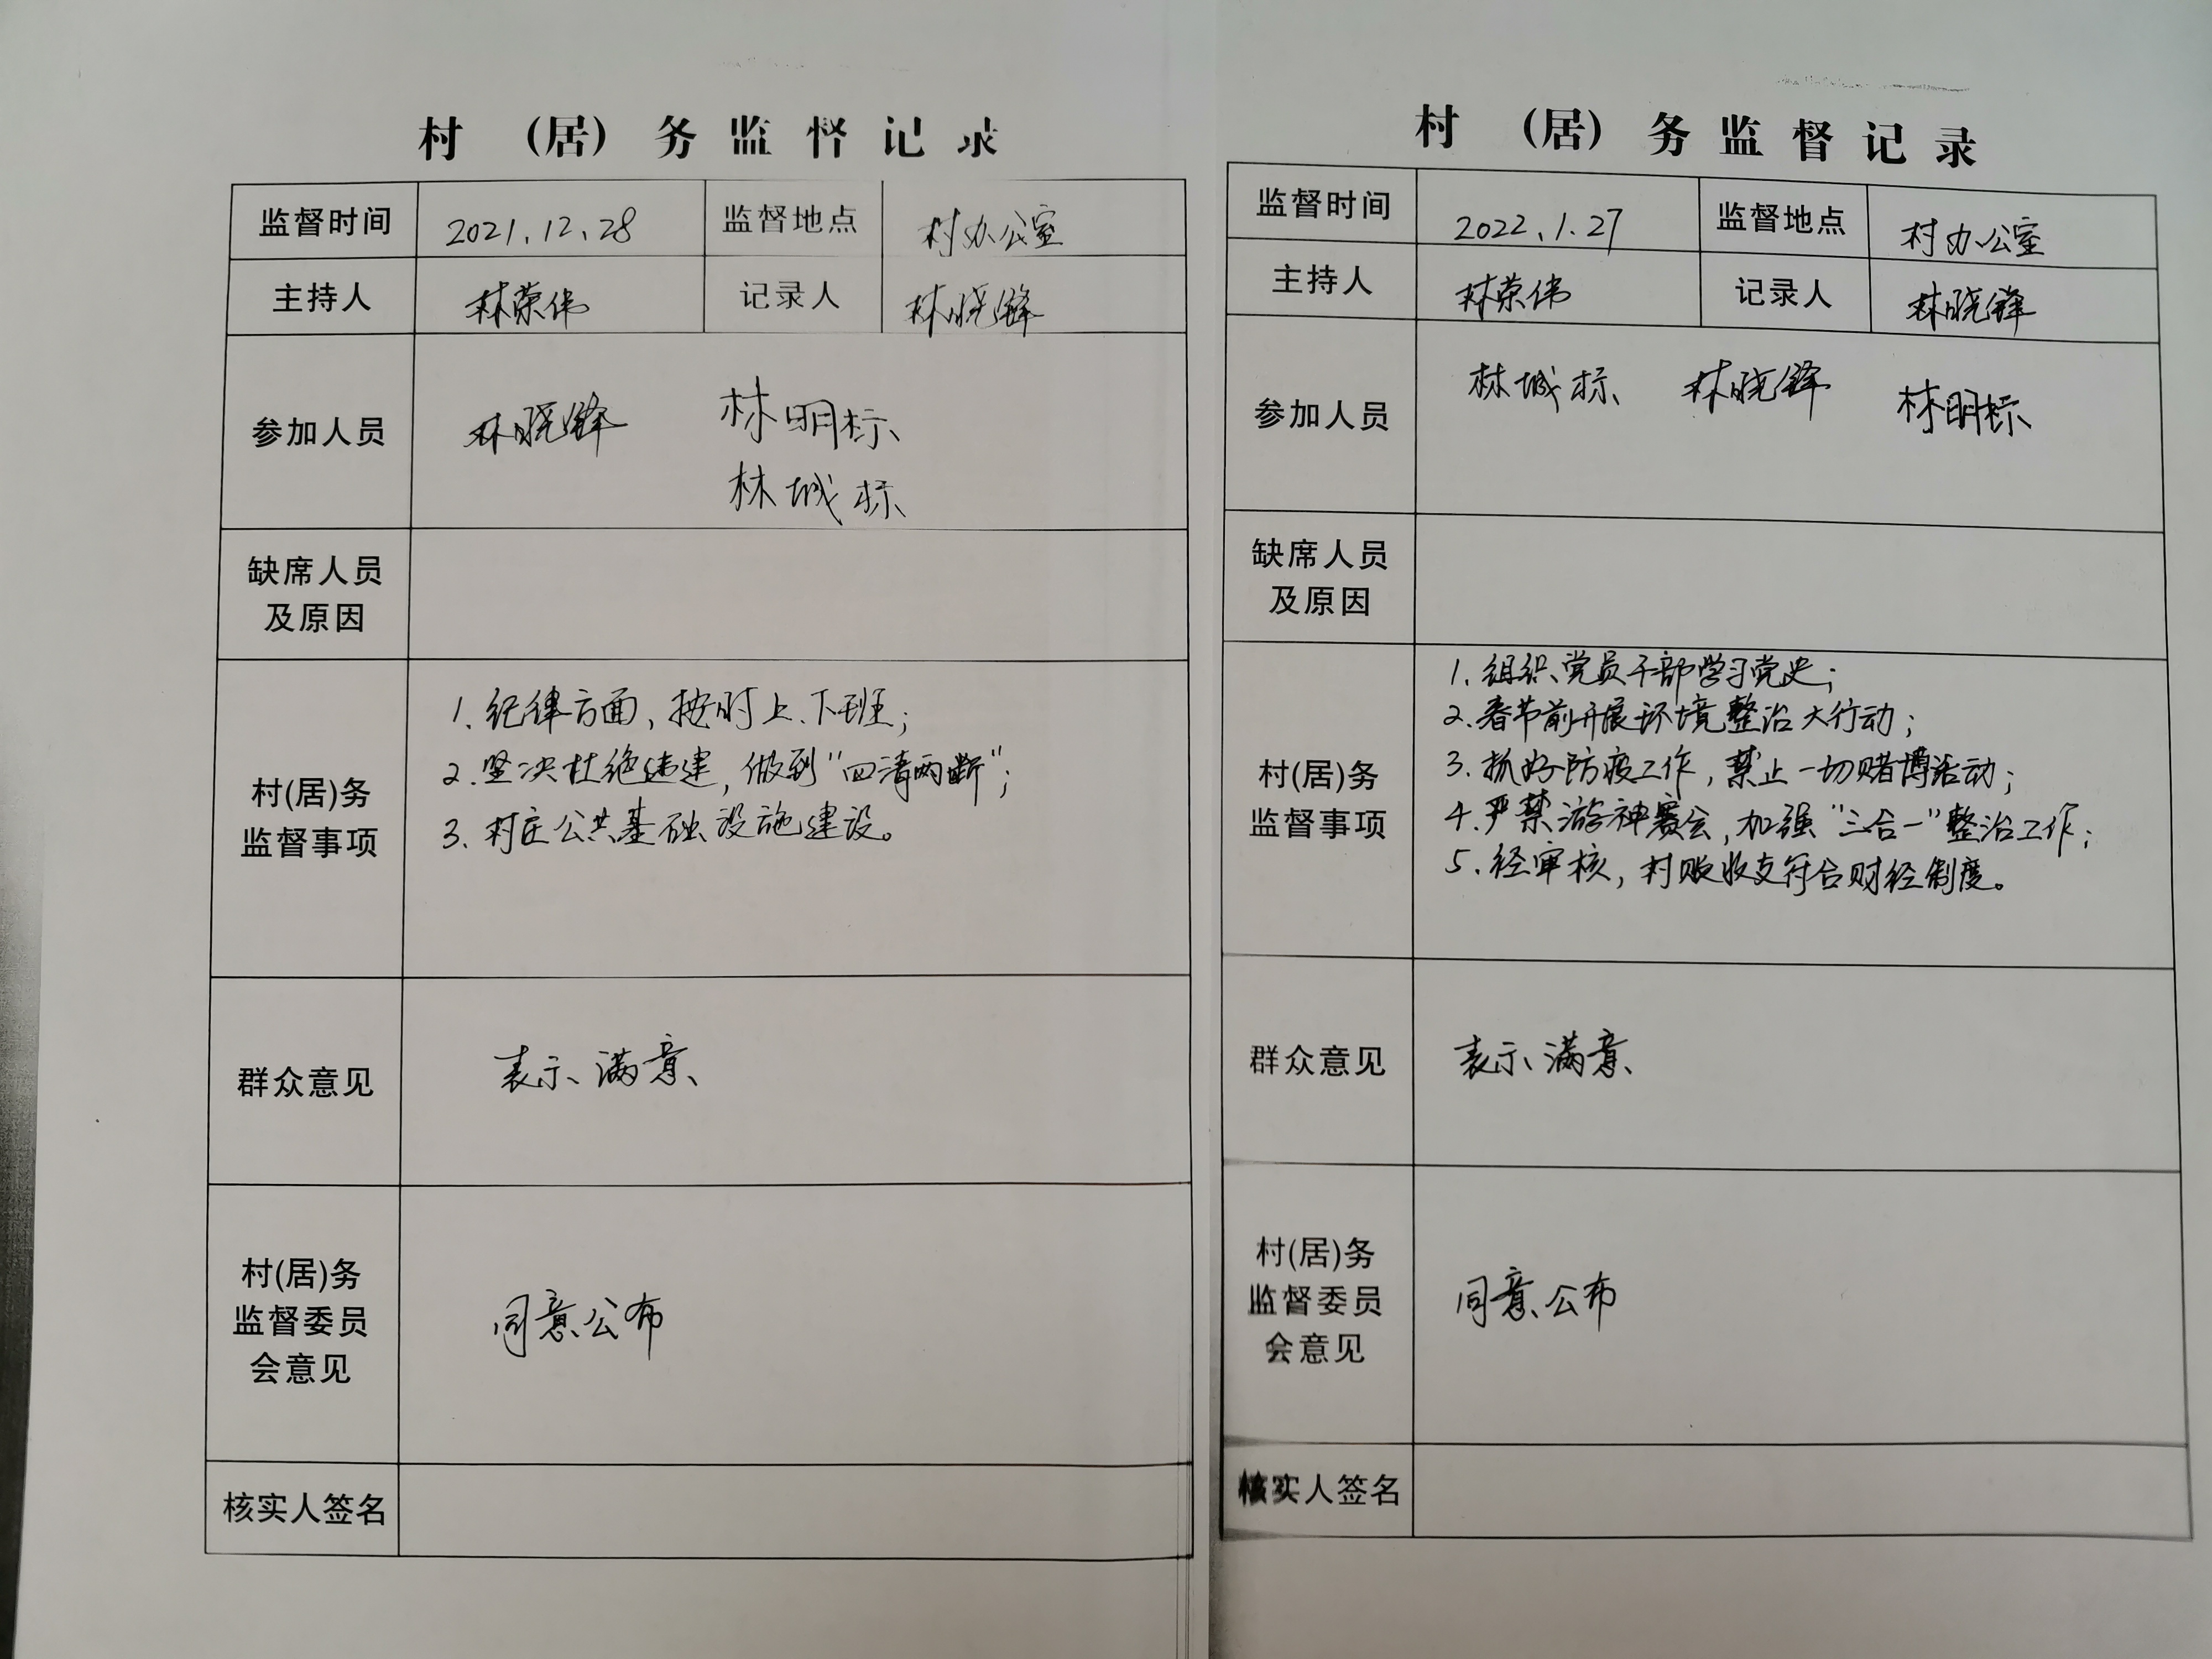 村（居）务监督记录
监督时间 2021.12.28 监督地点 村办公室
主持人 林荣伟 记录人 林晓锋
参加人员 林晓锋 林明标
林城标
缺席人员
及原因
村(居)务
监督事项
1.纪律方面，按时上、下班；
2.坚决杜绝违建，做到“四清两断”；
3.村庄公共基础设施建设。
群众意见 表示满意
村(居)务
监督委员
会意见
同意公布
核实人签名
村（居）务监督记录
监督时间 2022.1.27 监督地点 村办公室
主持人 林荣伟 记录人 林晓锋
参加人员 林城标 林晓锋 林明标
缺席人员
及原因
村(居)务
监督事项
1.组织党员干部学习党史；
2.春节前开展环境整治大行动；
3.抓好防疫工作，禁止一切赌博活动；
4.严禁游神赛会，加强“三合一”整治工作；
5.经审核，村账收支符合财经制度。
群众意见 表示满意
村(居)务
监督委员
会意见
同意公布
核实人签名